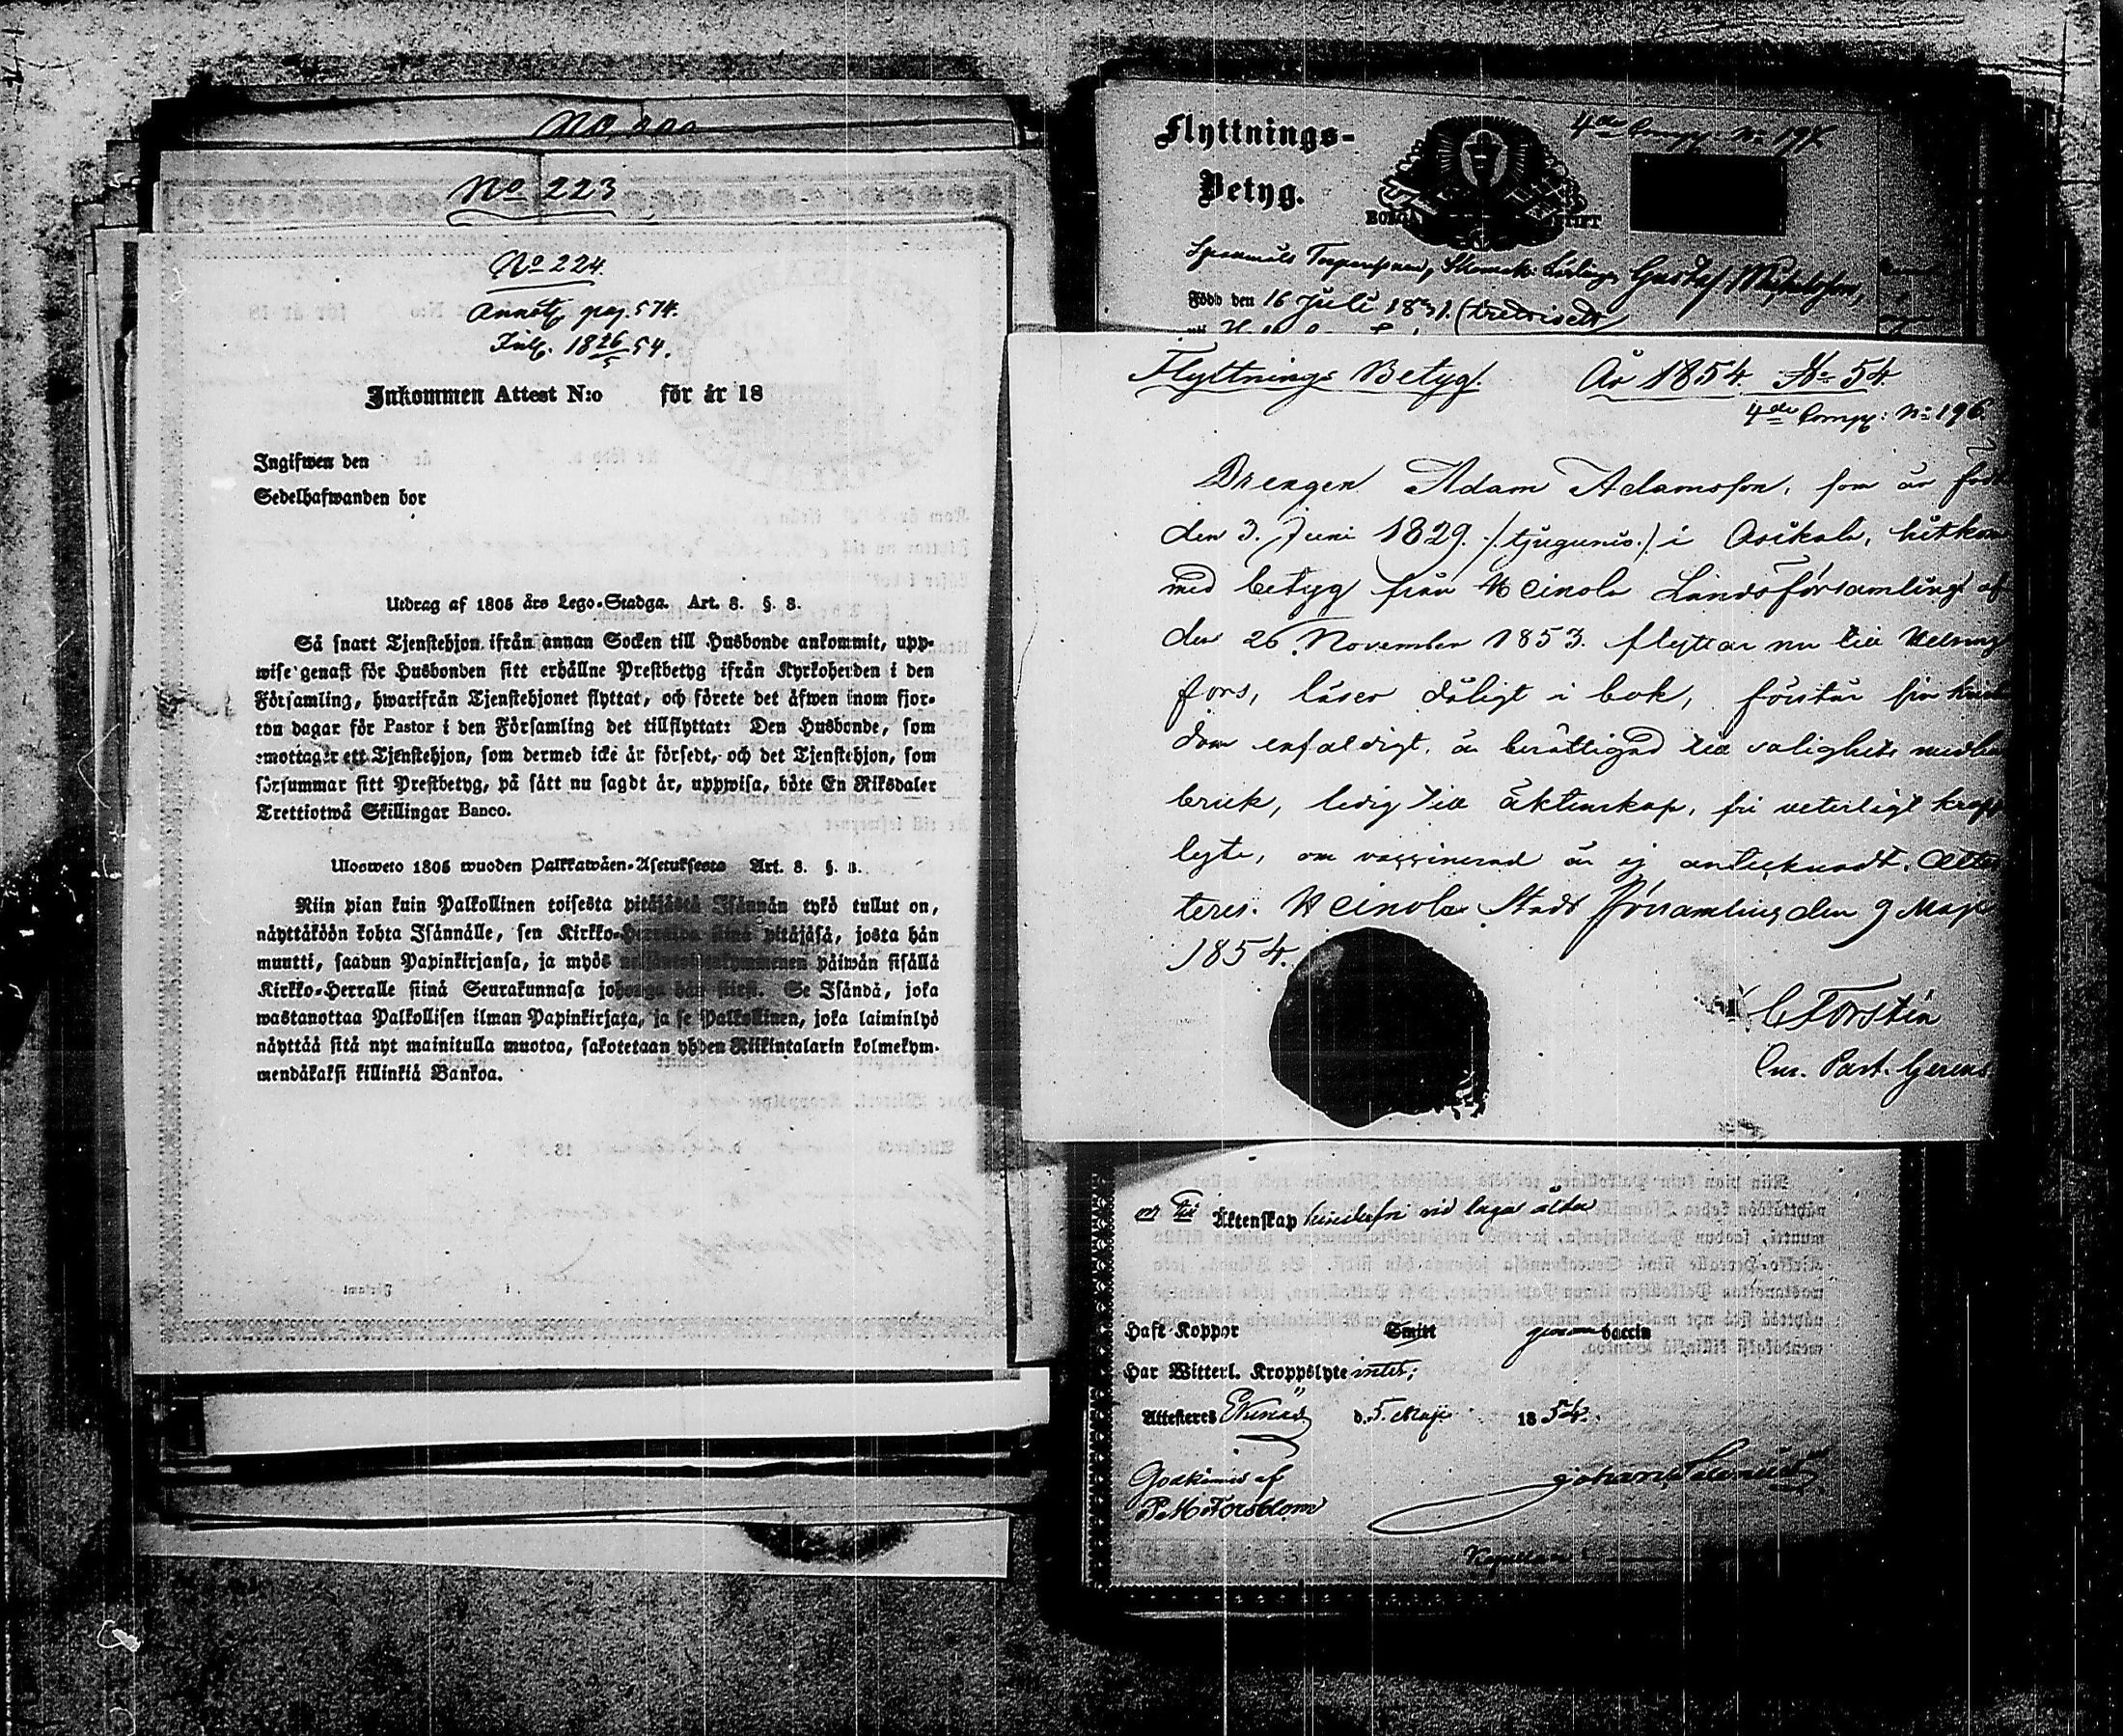 No 223
No 224
Annot. pag. 574.
Inl. 18 26/5 54.
Inkommen Attest N:o för år 18
Ingifwen den
Sedelhafwanden bor
Utdrag af 1805 års Lego-Stadga. Art. 8. §. 8.
Så snart Tjenstehjon ifrån annan Socken till Husbonde ankommit, upp-
wise genast för Husbonden sitt erhållne Prestbetyg ifrån Kyrkoherden i den
Församling, hwarifrån Tjenstehjonet flyttat, och förete det äfwen inom fjor-
ton dagar för Pastor i den Församling det tillflyttat: Den Husbonde, som
emottager ett Tjenstehjon, som dermed icke är försedt, och det Tjenstehjon, som
försummar sitt Prestbetyg, på sätt nu sagdt är, uppwisa, böte En Riksdaler
Trettiotwå Skillingar Banco.
Ulosweto 1805 wuoden Palkkawäen-Asetuksesta Art. 8. §. 8.
Niin pian kuin Palkollinen toisesta pitäjästä Isännän tykö tullut on,
näyttäköön kohta Isännälle, sen Kirkko-Herralda siinä pitäjäsä, josta hän
muutti, saadun Papinkirjansa, ja myös neljäntoistakymmenen päiwän sisällä
Kirkko-Herralle siinä Seurakunnasa johonga hän siirsi. Se Isändä, joka
wastanottaa Palkollisen ilman Papinkirjata, ja se Palkollinen, joka laiminlyö
näyttää sitä nyt mainitulla muotoa, sakotetaan yhden Riikintalarin kolmekym-
mendäkaksi killinkiä Bankoa.
Flyttnings-
Betyg.
4de Comp. No 197
BORGÅ STIFT
Gustaf Michelsson,
Född den 16 Juli 1831. (trettioett)
Flyttnings Betyg. År 1854. No 54
4de Comp: No 196
Drengen Adam Adamsson, som är född
den 3. Juni 1829. /:tjugunio:/ i Asikala, hitkom
med betyg från Heinola Landsförsamling af
den 26 November 1853. flyttar nu till Helsing
fors, läser dåligt i bok, förstår sin kristen
dom enfaldigt, är berättigad till salighets medlens
bruk, ledig till äktenskap, fri veterligt kropps
lyte, om vaccinerad är ej antecknadt. Attes
teres. Heinola Stads Församling den 9 Maji
1854.
C Forstén
Cur. Past. Gerens
Äktenskap hinderfri vid laga ålder
Haft Koppor Smitt genom vaccin
Har Witterl. Kroppslyte intet;
Attesteres Ekenäs d. 5. Maji 1854.
Godkännes af
Johan
Kapellan i